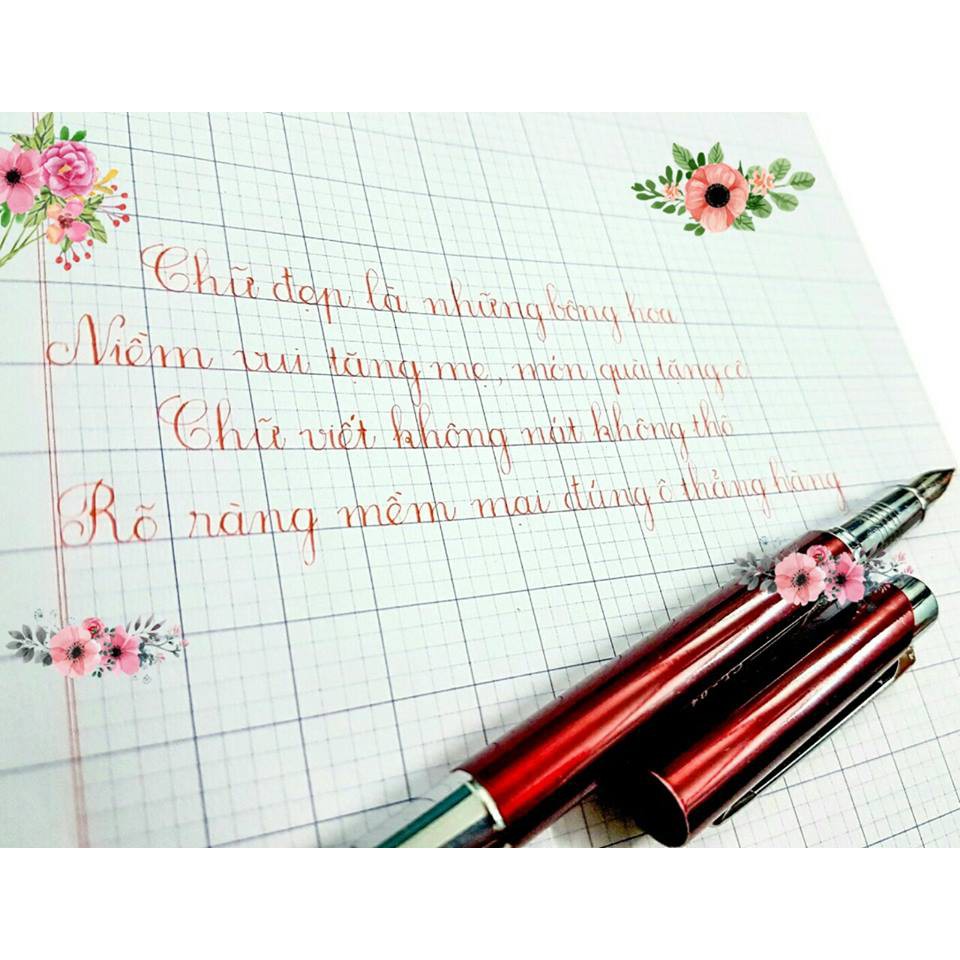 Chữ đẹp là những bông hoa
Niềm vui tặng mẹ, món quà tặng cô
Chữ viết không nát không thô
Rõ ràng mềm mại đúng ô thẳng hàng